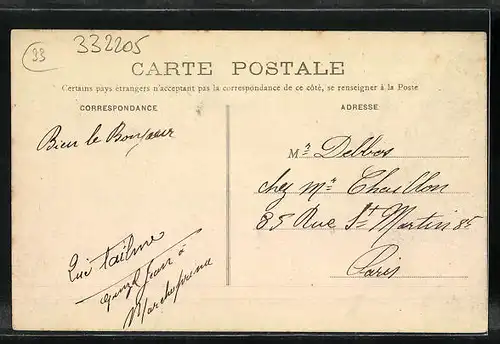 33
332205
CARTE POSTALE
Certains pays étrangers n'acceptant pas la correspondance de ce côté, se renseigner à la Poste
CORRESPONDANCE
ADRESSE
Bien le Bonjour
Mr Delbos
chez Mr Chaillon
85 Rue St Martin 85
Paris
Qui t'ailme
Jean à